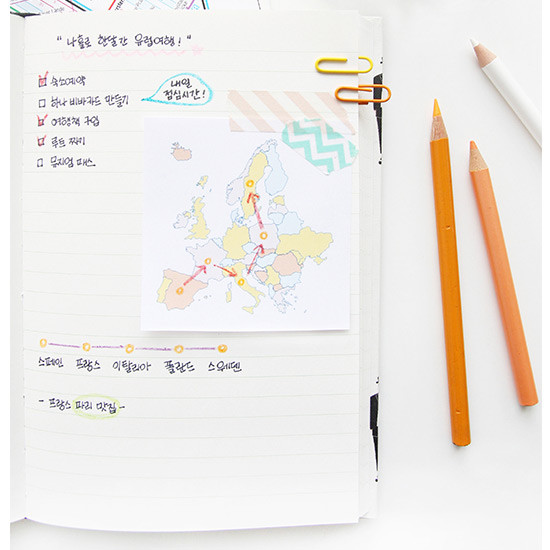 "나홀로 한달간 유럽여행!"
숙소예약
하나 비바카드 만들기
내일
점심시간!
여행책 구입
루트 짜기
뮤지엄 패스
스페인 프랑스 이탈리아 폴란드 스웨덴
- 프랑스 파리 맛집 -